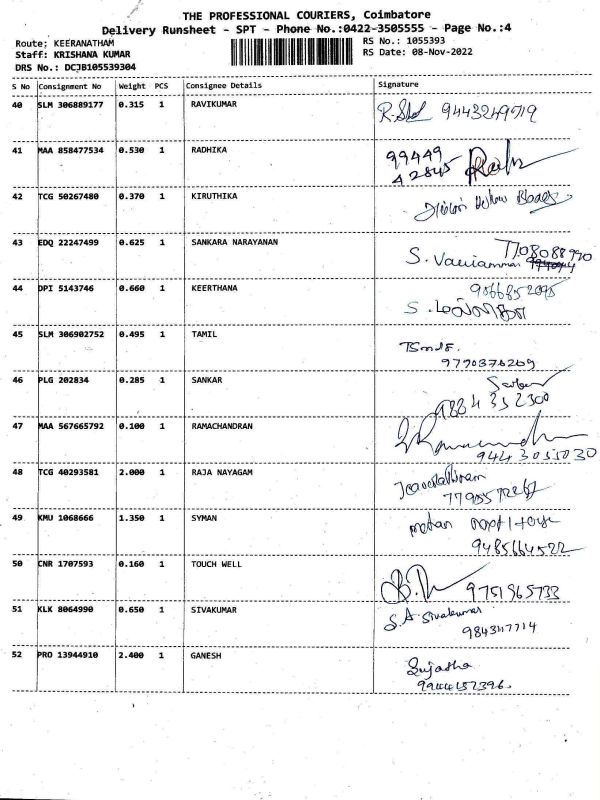 THE PROFESSIONAL COURIERS, Coimbatore
Delivery Runsheet - SPT - Phone No.:0422-3505555 - Page No.:4
Route: KEERANATHAM
RS No.: 1055393
Staff: KRISHANA KUMAR
RS Date: 08-Nov-2022
DRS No.: DCJB105539304
S No Consignment No Weight PCS Consignee Details Signature
40 SLM 306889177 0.315 1 RAVIKUMAR 9443249719
41 MAA 858477534 0.530 1 RADHIKA 99449
42845
42 TCG 50267480 0.370 1 KIRUTHIKA
43 EDQ 22247499 0.625 1 SANKARA NARAYANAN 7708088990
S.
44 DPI 5143746 0.660 1 KEERTHANA
S.
45 SLM 306902752 0.495 1 TAMIL
9790376269
46 PLG 202834 0.285 1 SANKAR
9884352300
47 MAA 567665792 0.100 1 RAMACHANDRAN
9443055030
48 TCG 40293581 2.000 1 RAJA NAYAGAM
49 KMU 1068666 1.350 1 SYMAN
9485664522
50 CNR 1707593 0.160 1 TOUCH WELL 9751965733
51 KLK 8064990 0.650 1 SIVAKUMAR S.A. Sivakumar
9843117714
52 PRO 13944910 2.400 1 GANESH Sujatha
9944152396.